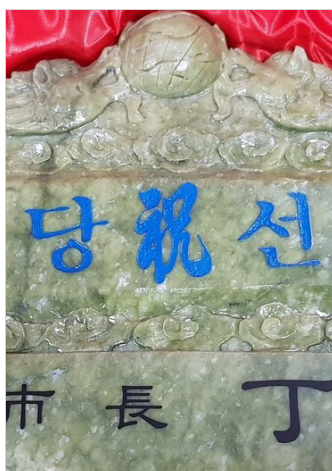 당 祝 선
市 長 丁